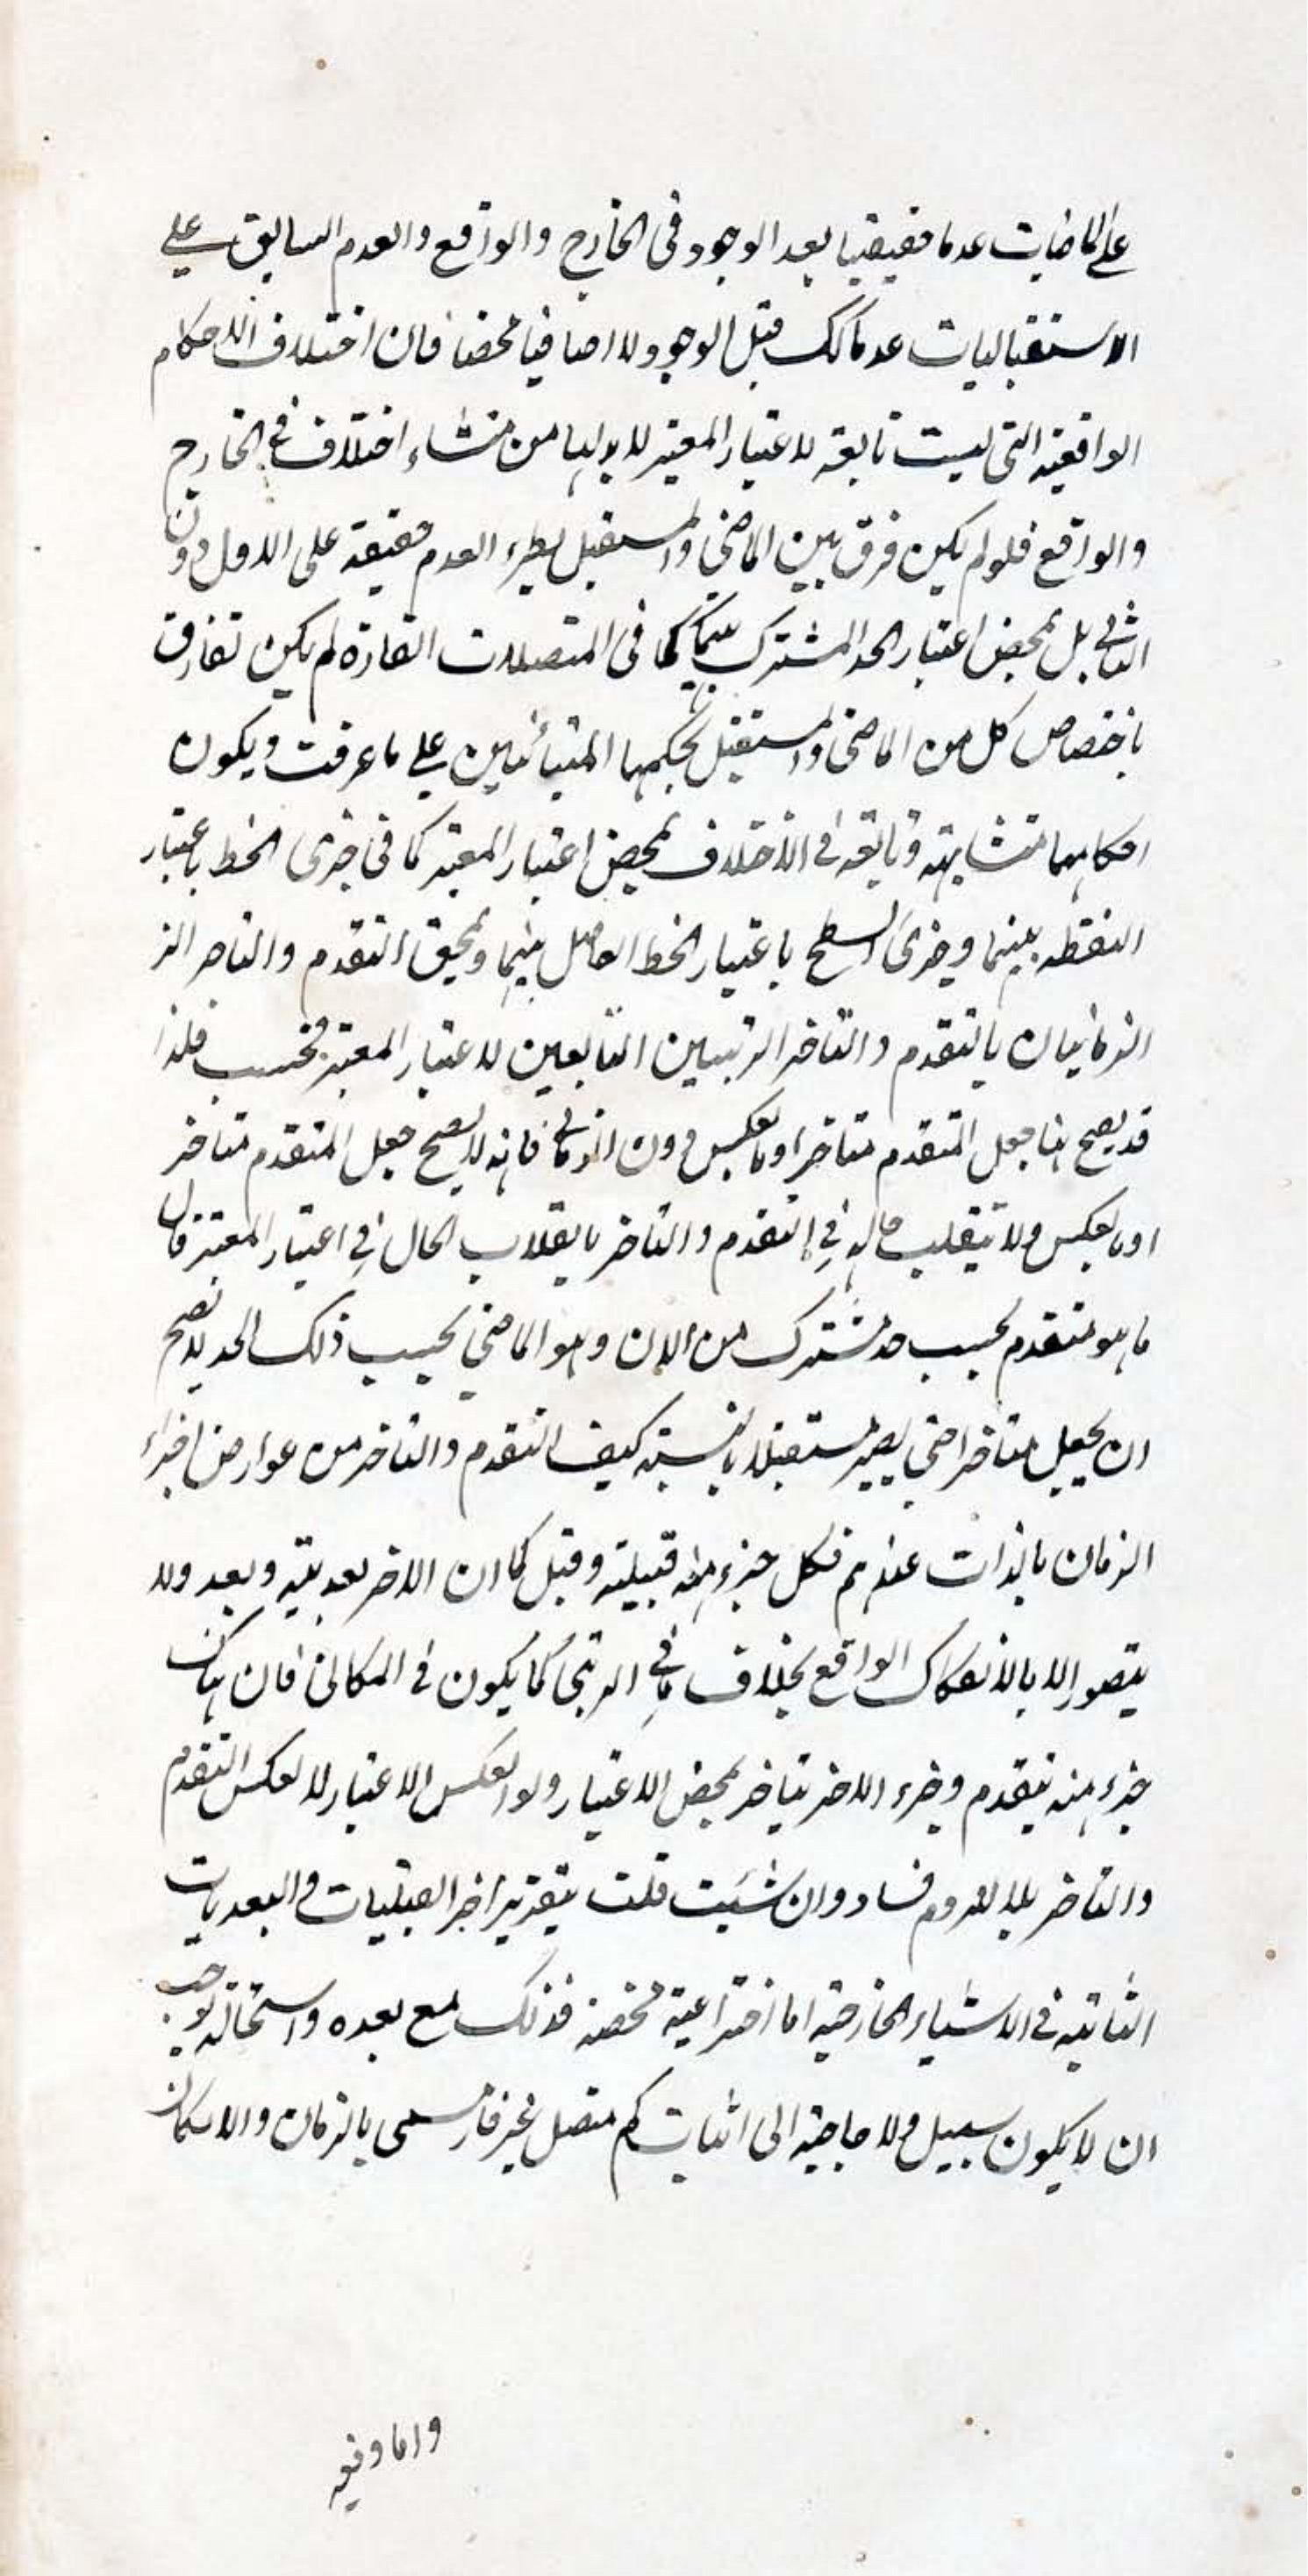 على الماضيات عدما حقيقيا بعد الوجود فى الخارج والواقع والعدم السابق على
الاستقباليات عدما كك قبل الوجود لا اضافيا محضا فان اختلاف الاحكام
الواقعية التى ليست تابعة لاعتبار المعتبر لا بد لها من منشاء اختلاف فى الخارج
والواقع فلو لم يكن فرق بين الماضى والمستقبل بطرء العدم حقيقة على الاول دون
الثانى بل بمحض اعتبار الحد المشترك بينهما كما فى المتصلات القارة لم يكن تفارق
باختصاص كل من الماضى والمستقبل بحكمهما المتبائنين على ما عرفت ويكون
احكامهما متشابهة وتابعة فى الاختلاف بمحض اعتبار المعتبر كما فى جزئى الخط باعتبار
النقطه بينهما وجزئى السطح باعتبار الخط الفاصل بينهما ويلحق التقدم والتاخر
الزمانيان بالتقدم والتاخر الرتبيين التابعين لاعتبار المعتبر فحسب فلذا
قد يصح هنا جعل المتقدم متاخرا وبالعكس دون الزمانى فانه لا يصح جعل المتقدم متاخر
او بالعكس ولا تنقلب حاله فى التقدم والتاخر بانقلاب الحال فى اعتبار المعتبر فان
ما هو متقدم بحسب حد مشترك من الان وهو الماضى بحسب ذلك الحد لا يصح
ان يجعل متاخرا حتى يصير مستقبلا بالنسبة كيف التقدم والتاخر من عوارض اجزاء
الزمان بالذات عندهم فكل جزء منه قبلية وقبل كما ان الاخر بعدية وبعد ولا
يتصور الا بالانفكاك الواقع بخلاف ما فى الرتبى كما يكون فى المكانى فان هناك
جزء منه يتقدم وجزء الاخر يتاخر بمحض الاعتبار ولو انعكس الاعتبار لانعكس التقدم
والتاخر بلا لزوم فساد وان شئت قلت بتقرير اخر القبليات والبعديات
الثابتة فى الاشياء الخارجية اما اختراعية محضة فذلك مع بعده واستحالته يوجب
ان لا يكون سبيل ولا حاجة الى اثبات كم متصل غير قار مسمى بالزمان والا لكان
واما واقعية